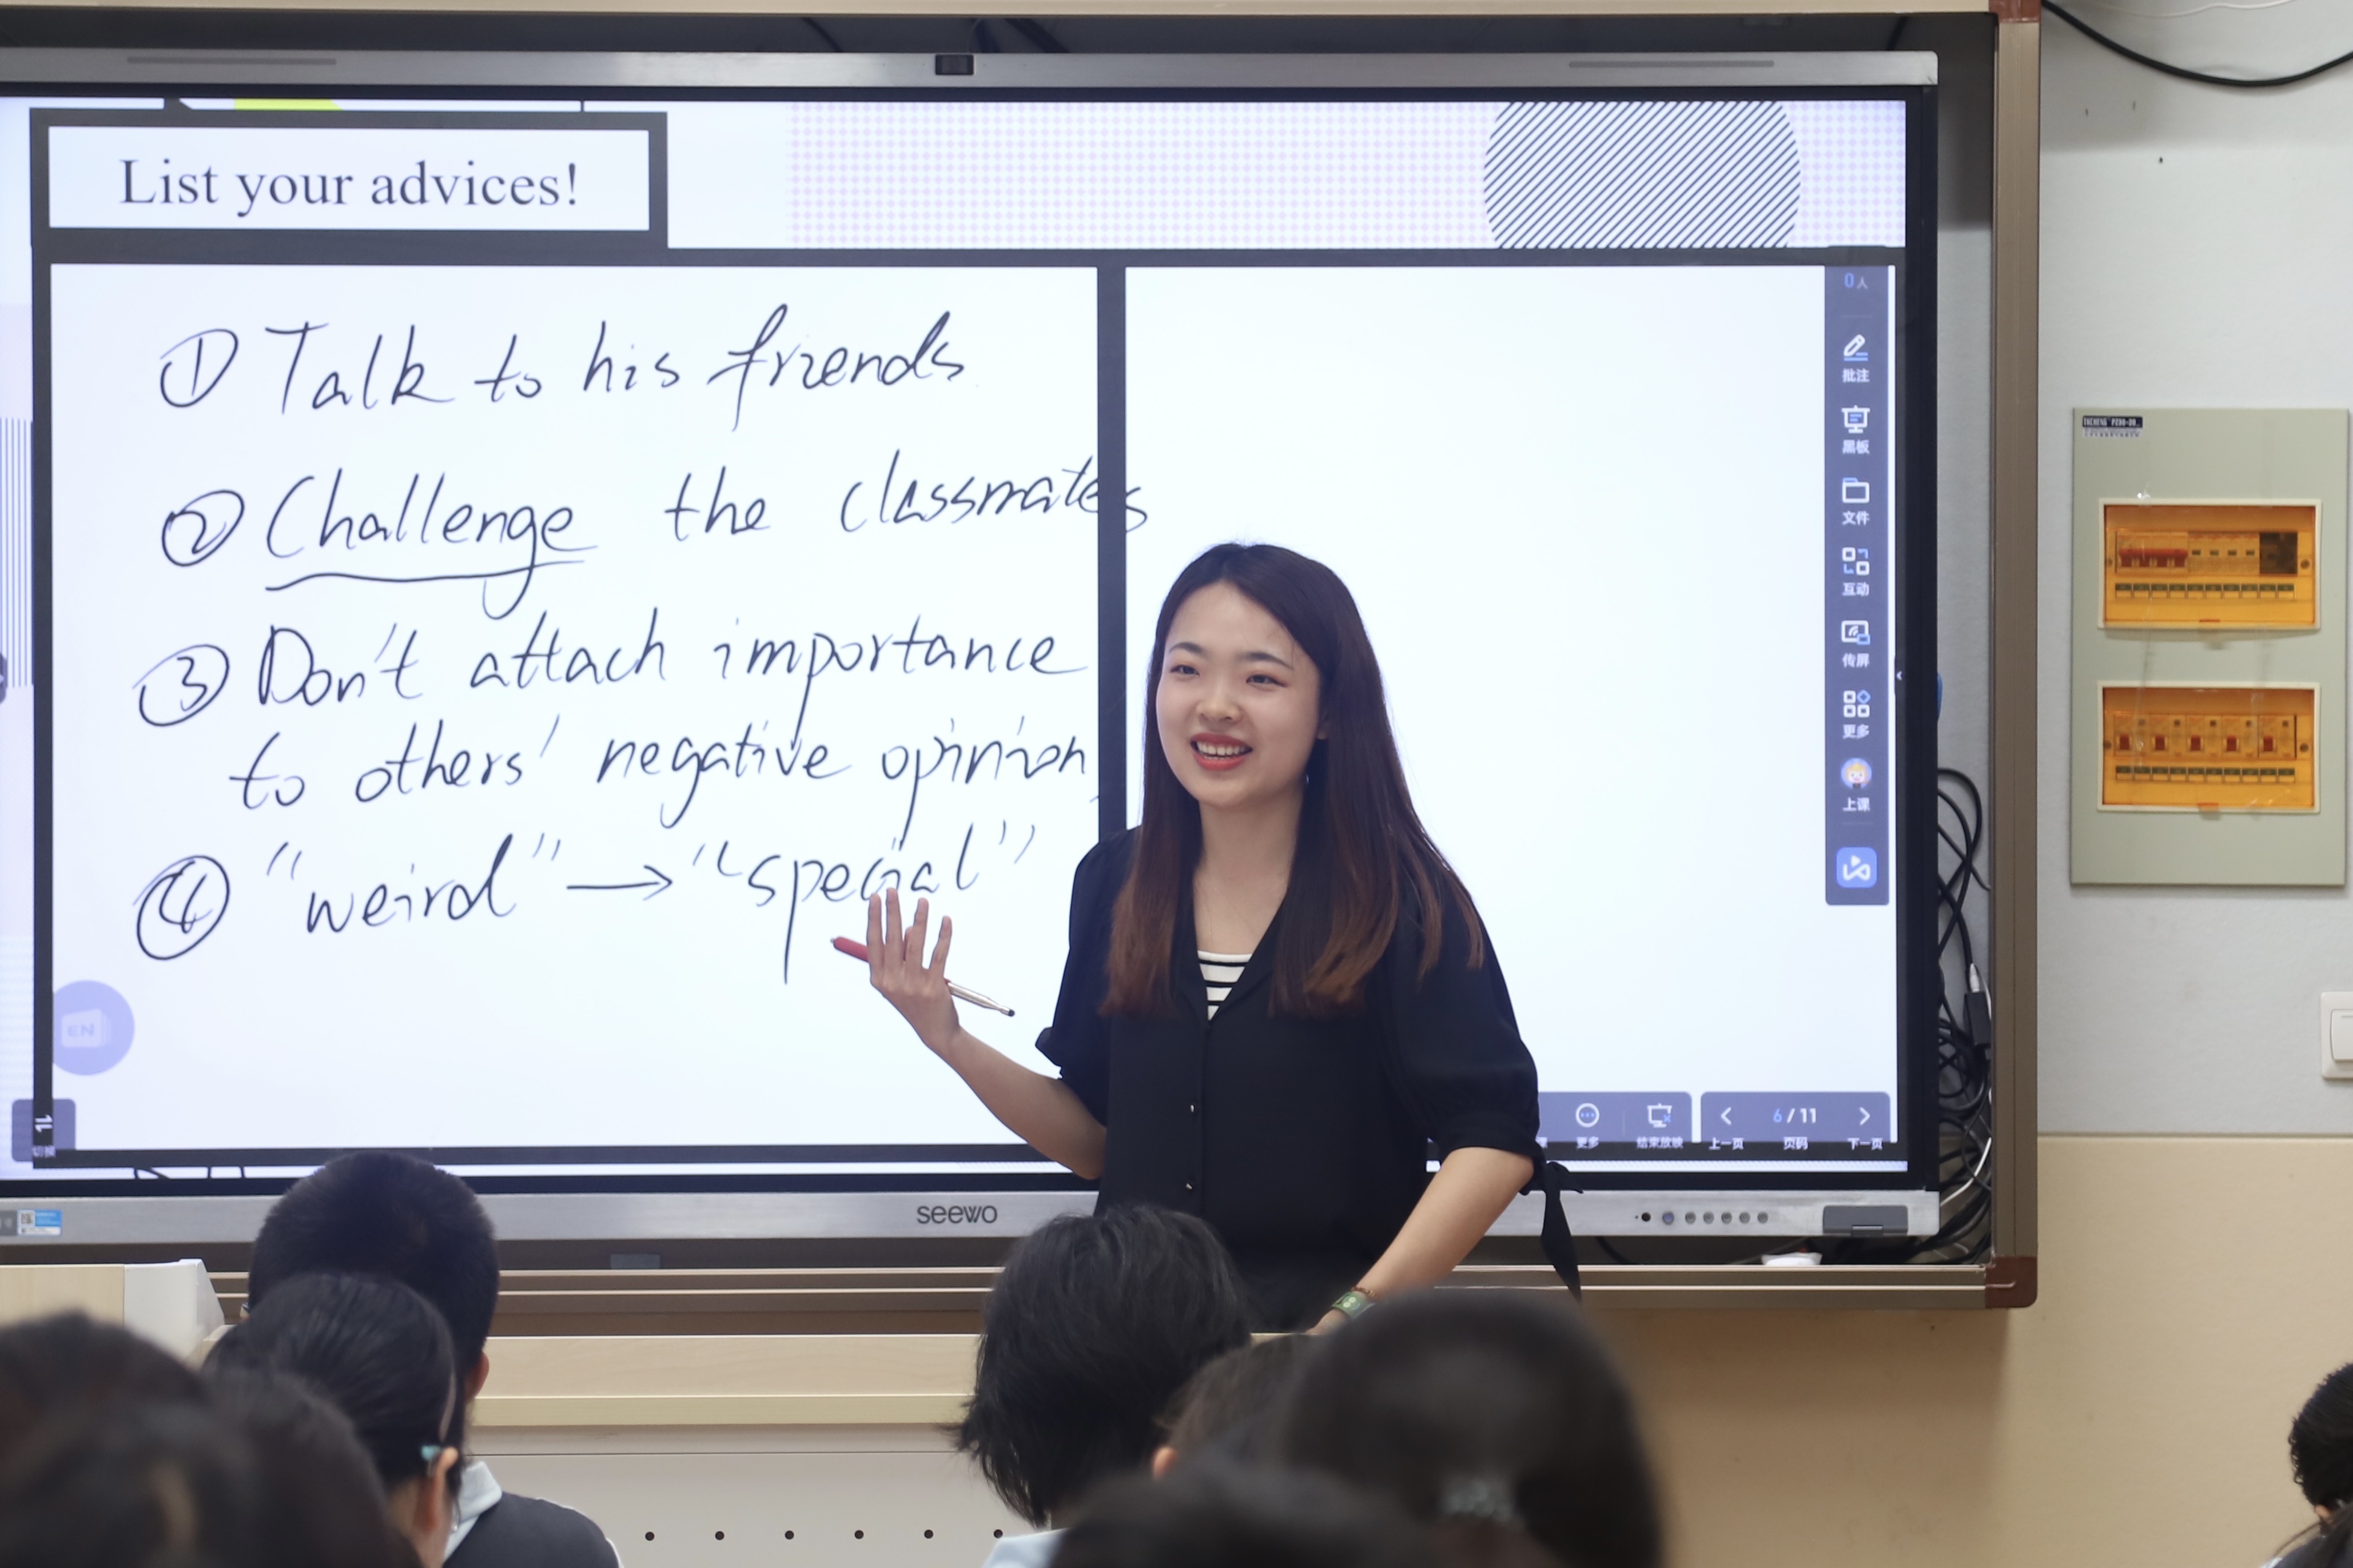 List your advices!
① Talk to his friends
② Challenge the classmates
③ Don't attach importance
to others' negative opinion
④ "weird" → "special"
0人
批注
黑板
文件
互动
传屏
更多
上课
EN
更多
结束放映
上一页
6 / 11
页码
下一页
切换
seewo